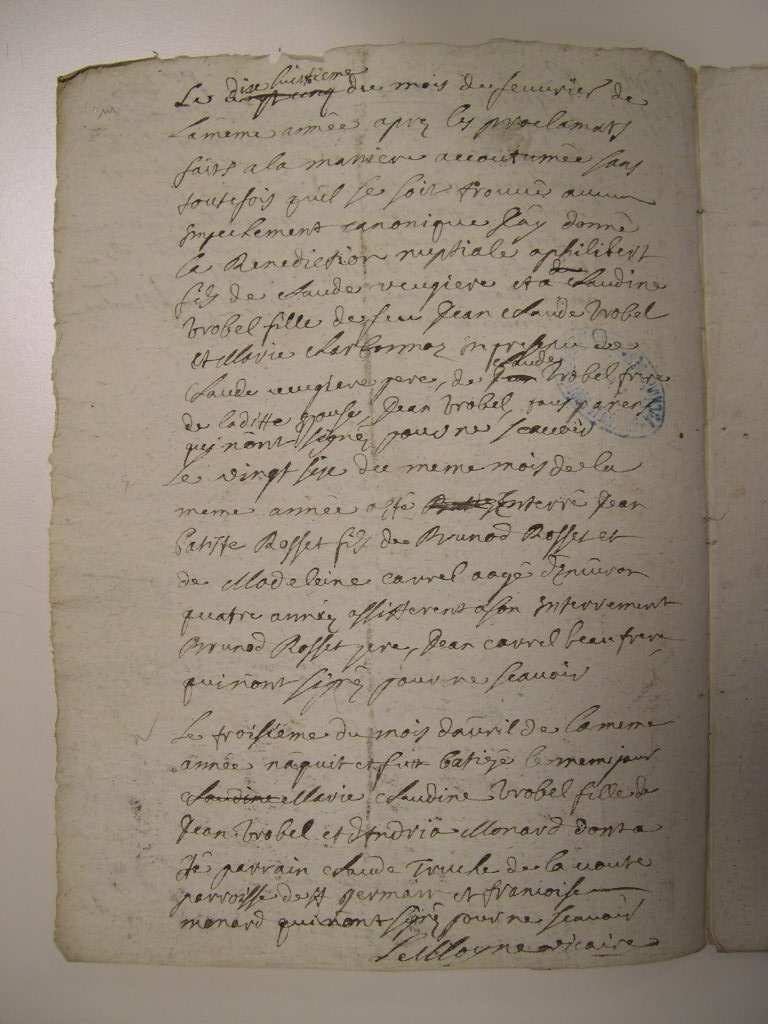 Le dise huittieme
vingt cinq du mois du feuurier de
la meme année apres les proclamats
faits a la maniere accoutumée sans
toutefois qu'il se soit trouué aucun
empeschement canonique j'ay donné
la Benediction nuptiale a philibert
fils de claude ueugiere et a claudine
Vrobel fille de feu Jean claude Vrobel
et Marie charbonnoz en presence de
claude ueugiere pere, de claude Vrobel frere
de laditte epouse, Jean Vrobel, tous parens
qui n'ont signéz pour ne scauoir
Le vingt sixe du meme mois de la
meme année a esté enterré Jean
batiste Rosset fils de Brunod Rosset et
de Madeleine carrel aagé d'enuiron
quatre années assisterent a son enterrement
Brunod Rosset pere, Jean carrel beau frere
qui n'ont signéz pour ne scauoir
Le troisieme du mois d'auril de la meme
année naquit et fut batizé le meme jour
claudine Marie claudine Vrobel fille de
Jean Vrobel et d'Andriä Monard dont a
été parrain claude Truche de la uoute
parroisse de st germain et francoise
monard qui n'ont signéz pour ne scauoir
Le Moyne uicaire